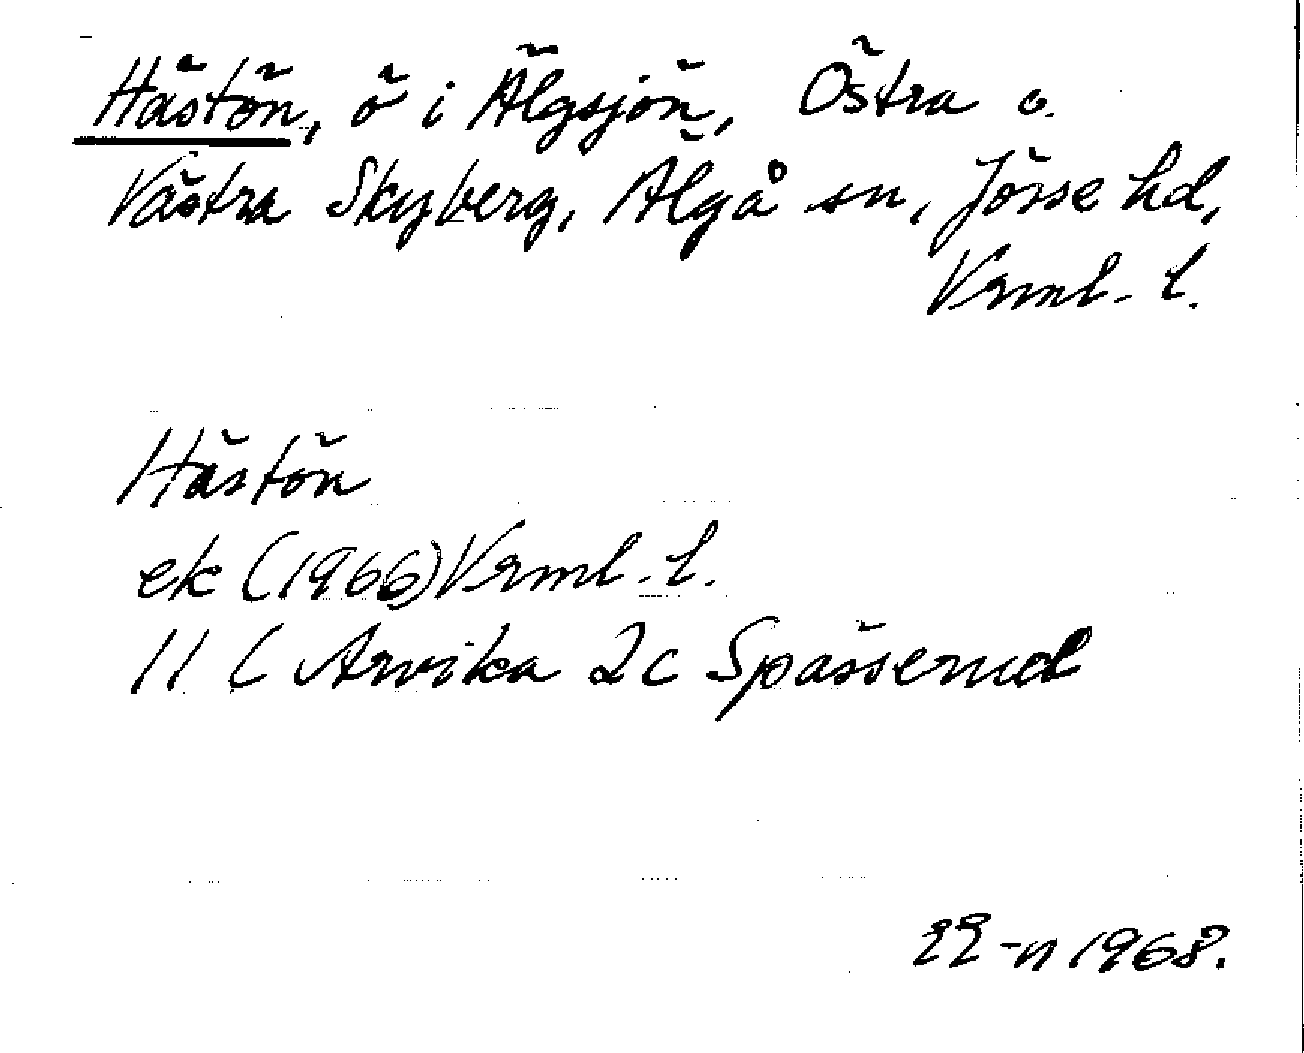 Hästön, ö i Älgsjön, Östra o.
Västra Skyberg, Älgå sn, Jösse hd,
Vrml. l.
Hästön
ek (1966) Vrml. l.
11 C Arvika 2c Spässerud
1968.